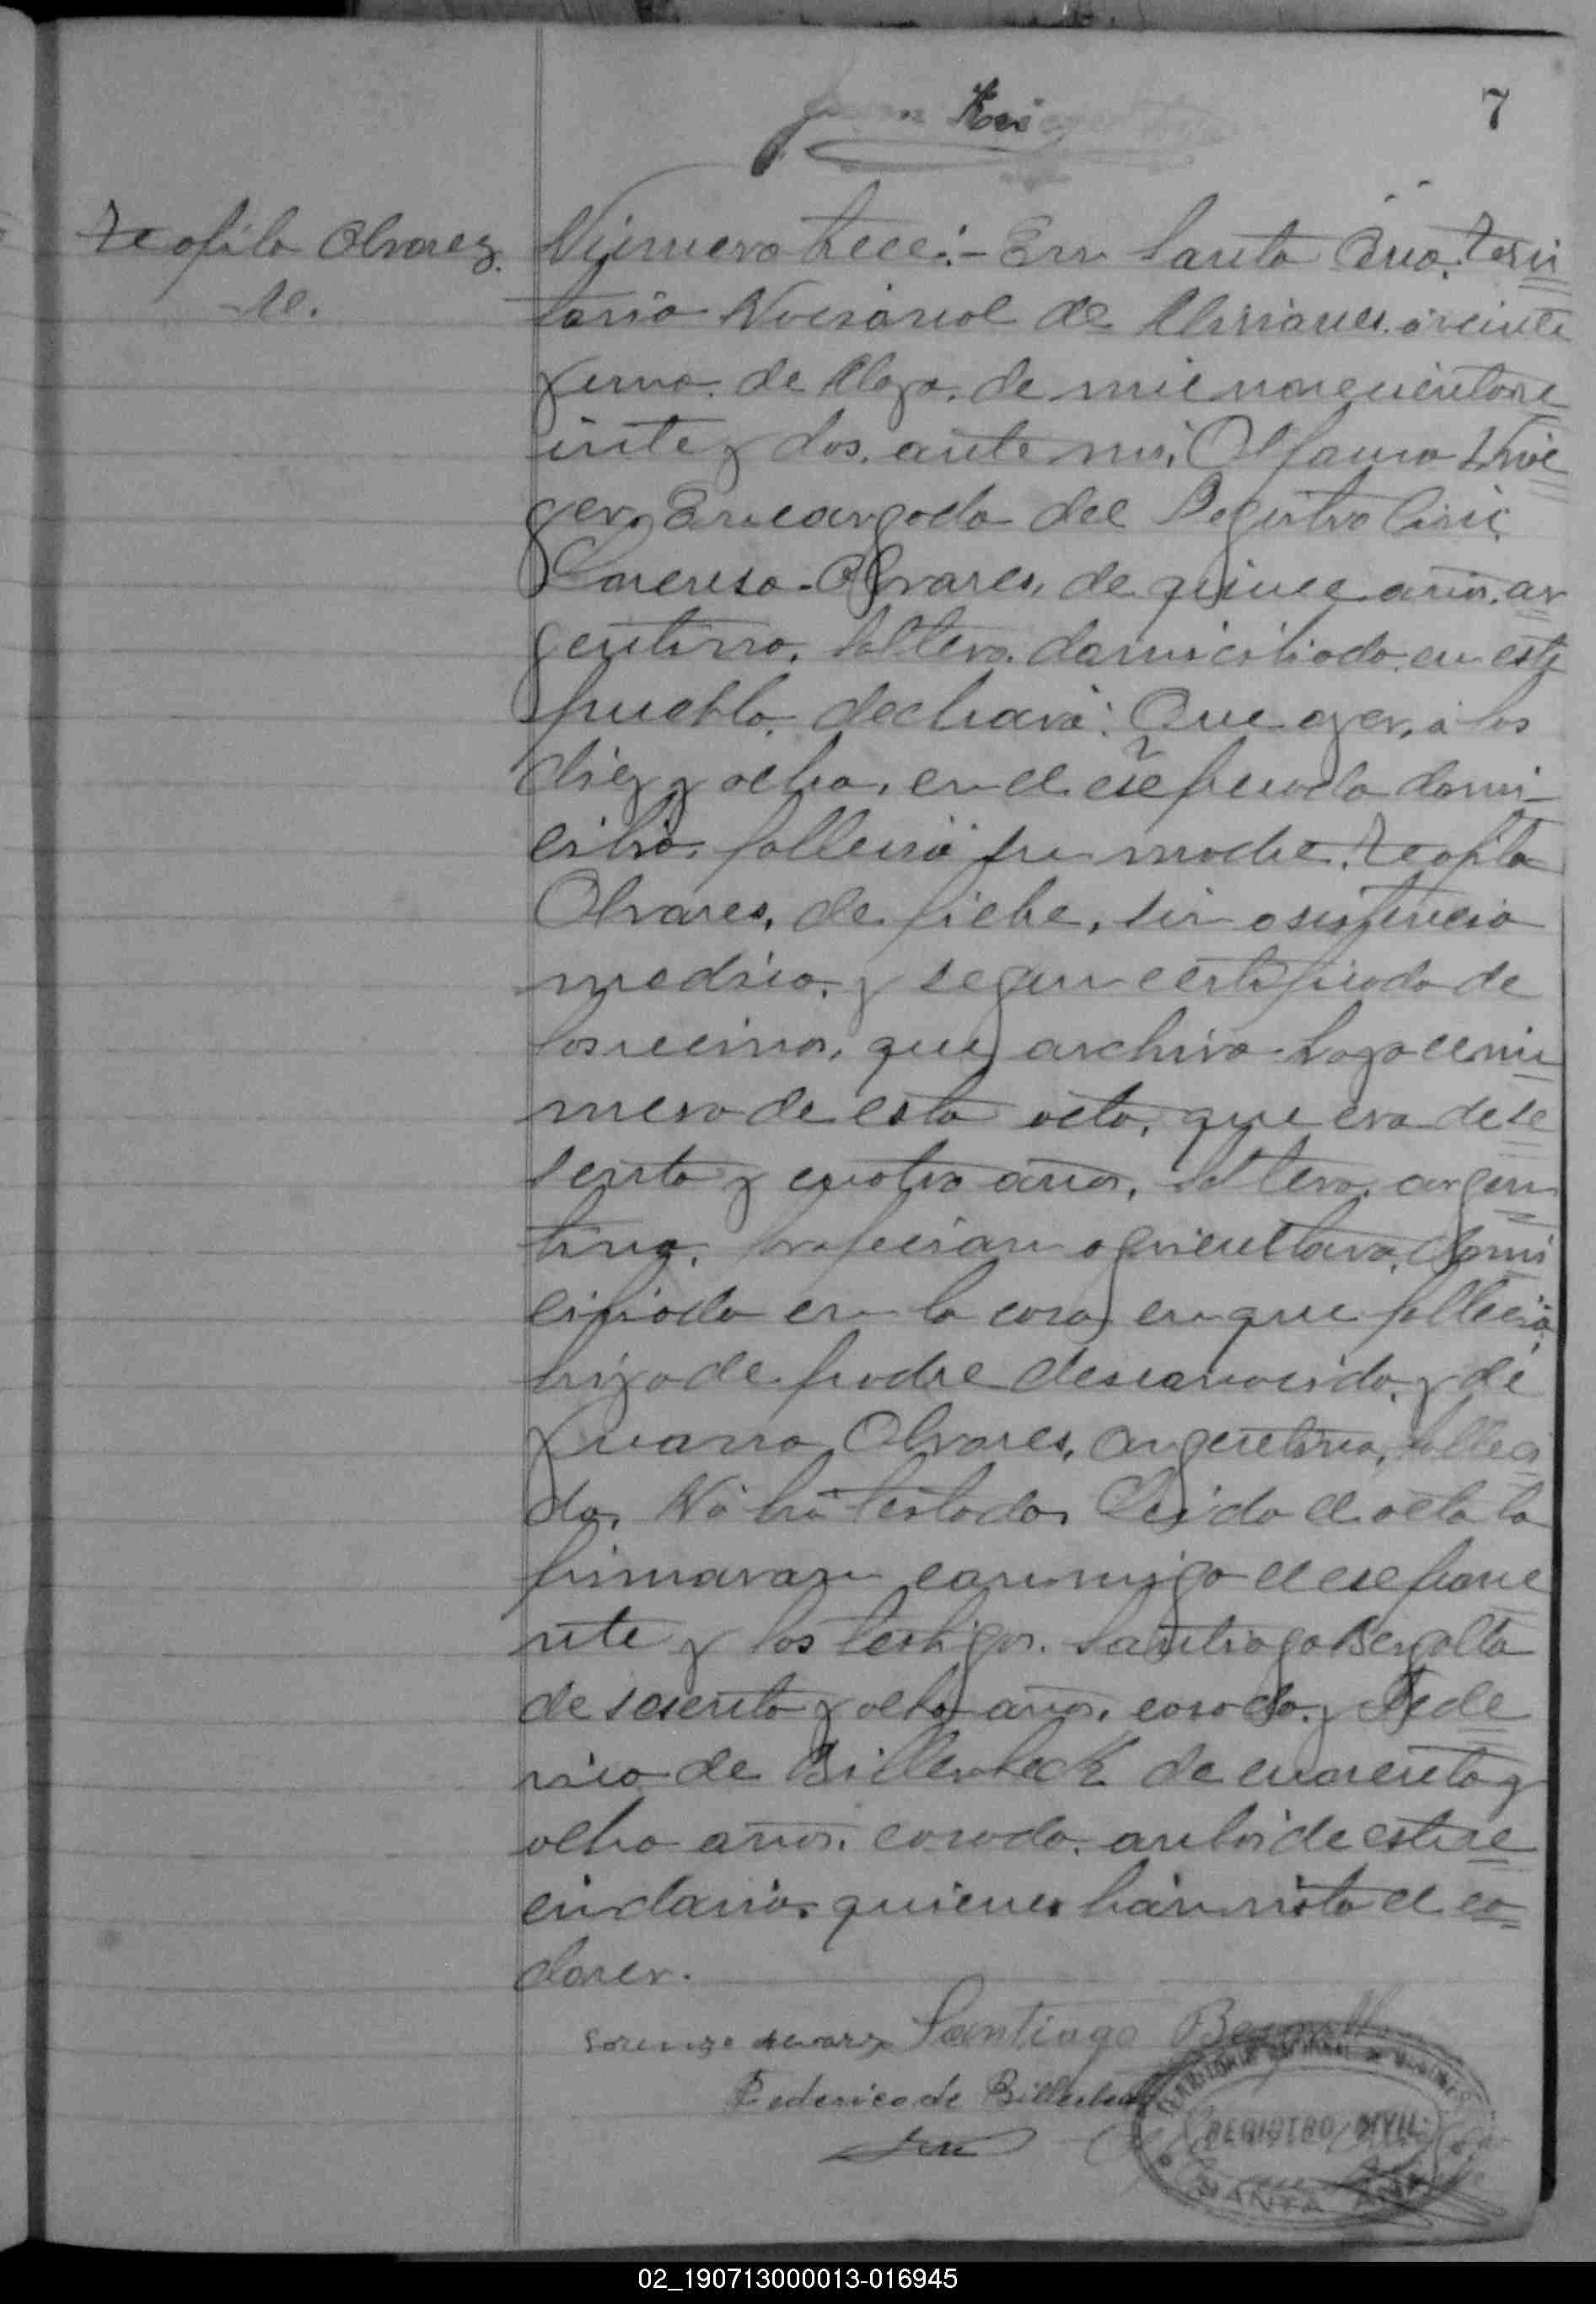 7
Teofila Alvarez.
Número trece:- En Santa Ana, Terri
torio Nacional de Misiones, á veinte
y uno de Mayo de mil novecientos ve
inte y dos, ante mi,
ger, Encargado del Registro Civil,
Lorenso Alvares, de quince años, ar
gentino, soltero, domiciliado en este
pueblo, declaró: Que ayer, á las
diez y ocho, en el domi
cilio, falleció su madre, Teofila
Alvares, de fiebre, sin asistencia
medica, y segun certificado de
los vecinos, que archivo bajo el nu
mero de esta acta, que era de se
senta y cuatro años, soltera, argen
tina, profesion agricultora, domi
ciliada en la casa en que falleció,
hija de padre desconocido, y de
Juana Alvares, argentina, falleci
da. No há testado. Leida el acta la
firmaron conmigo el espone
nte y los testigos, Santiago Bergallo
de sesenta y ocho años, casado, y Fede
rico de Billerbeck de cuarenta y
ocho años, casado, ambos de este ve
cindario, quienes hán visto el ca
daver.
Lorenzo Alvarez Santiago Bergallo
Federico de Billerbeck
TERRITORIO NACIONAL DE MISIONES
REGISTRO CIVIL
SANTA ANA
02_190713000013-016945